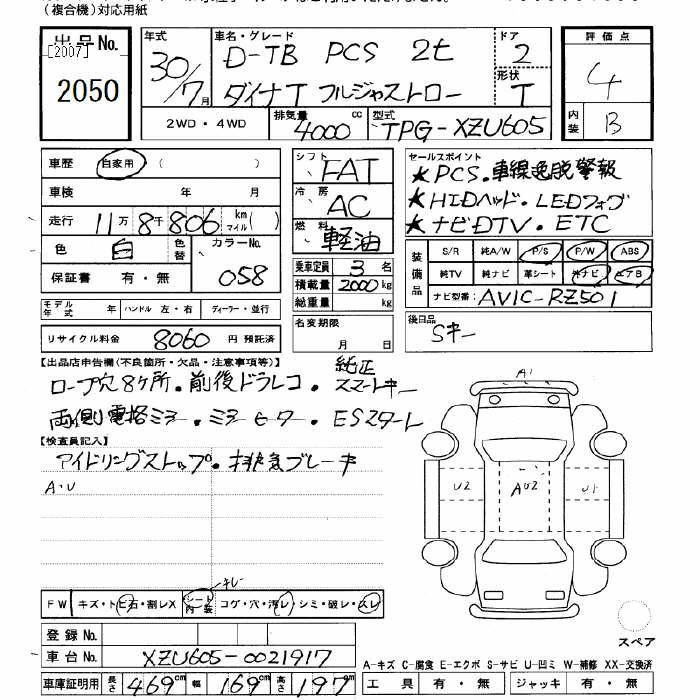 (複合機)対応用紙
出品No. [2007] 2050
年式 30/7月
車名・グレード D-TB PCS 2t ダイナT フルジャストロー
ドア 2
形状 T
評価点 4
内装 B
2WD・4WD
排気量 4000cc
型式 TPG-XZU605
車歴 自家用 ( )
車検 年 月
走行 11万8千806 km マイル( )
色 白 色替
カラーNo. 058
保証書 有・無
シフト FAT
冷房 AC
燃料 軽油
乗車定員 3名
積載量 2000kg
総重量 kg
セールスポイント
★PCS.車線逸脱警報
★HIDヘッド.LEDフォグ
★ナビDTV.ETC
装備品 S/R 純A/W P/S P/W ABS
純TV 純ナビ 革シート 外ナビ エアB
ナビ型番: AVIC-RZ501
モデル年式 年 ハンドル 左・右 ディーラー・並行
名変期限 月 日
後日品 Sキー
リサイクル料金 8060 円 預託済
【出品店申告欄(不良箇所・欠品・注意事項等)】
ロープ穴8ヶ所.前後ドラレコ.純正スマートキー
両側電格ミラー.ミラーヒーター.ESスタート
【検査員記入】
アイドリングストップ.排気ブレーキ
A・U
A1
U2 AU2 U1
FW キズ・トビ石・割レX シート内装 キレ コゲ・穴・汚レ・シミ・破レ・スレ
スペア
登録No.
車台No. XZU605-0021917
A-キズ C-腐食 E-エクボ S-サビ U-凹ミ W-補修 XX-交換済
車庫証明用 長さ 469cm 幅 169cm 高さ 197cm
工具 有・無 ジャッキ 有・無